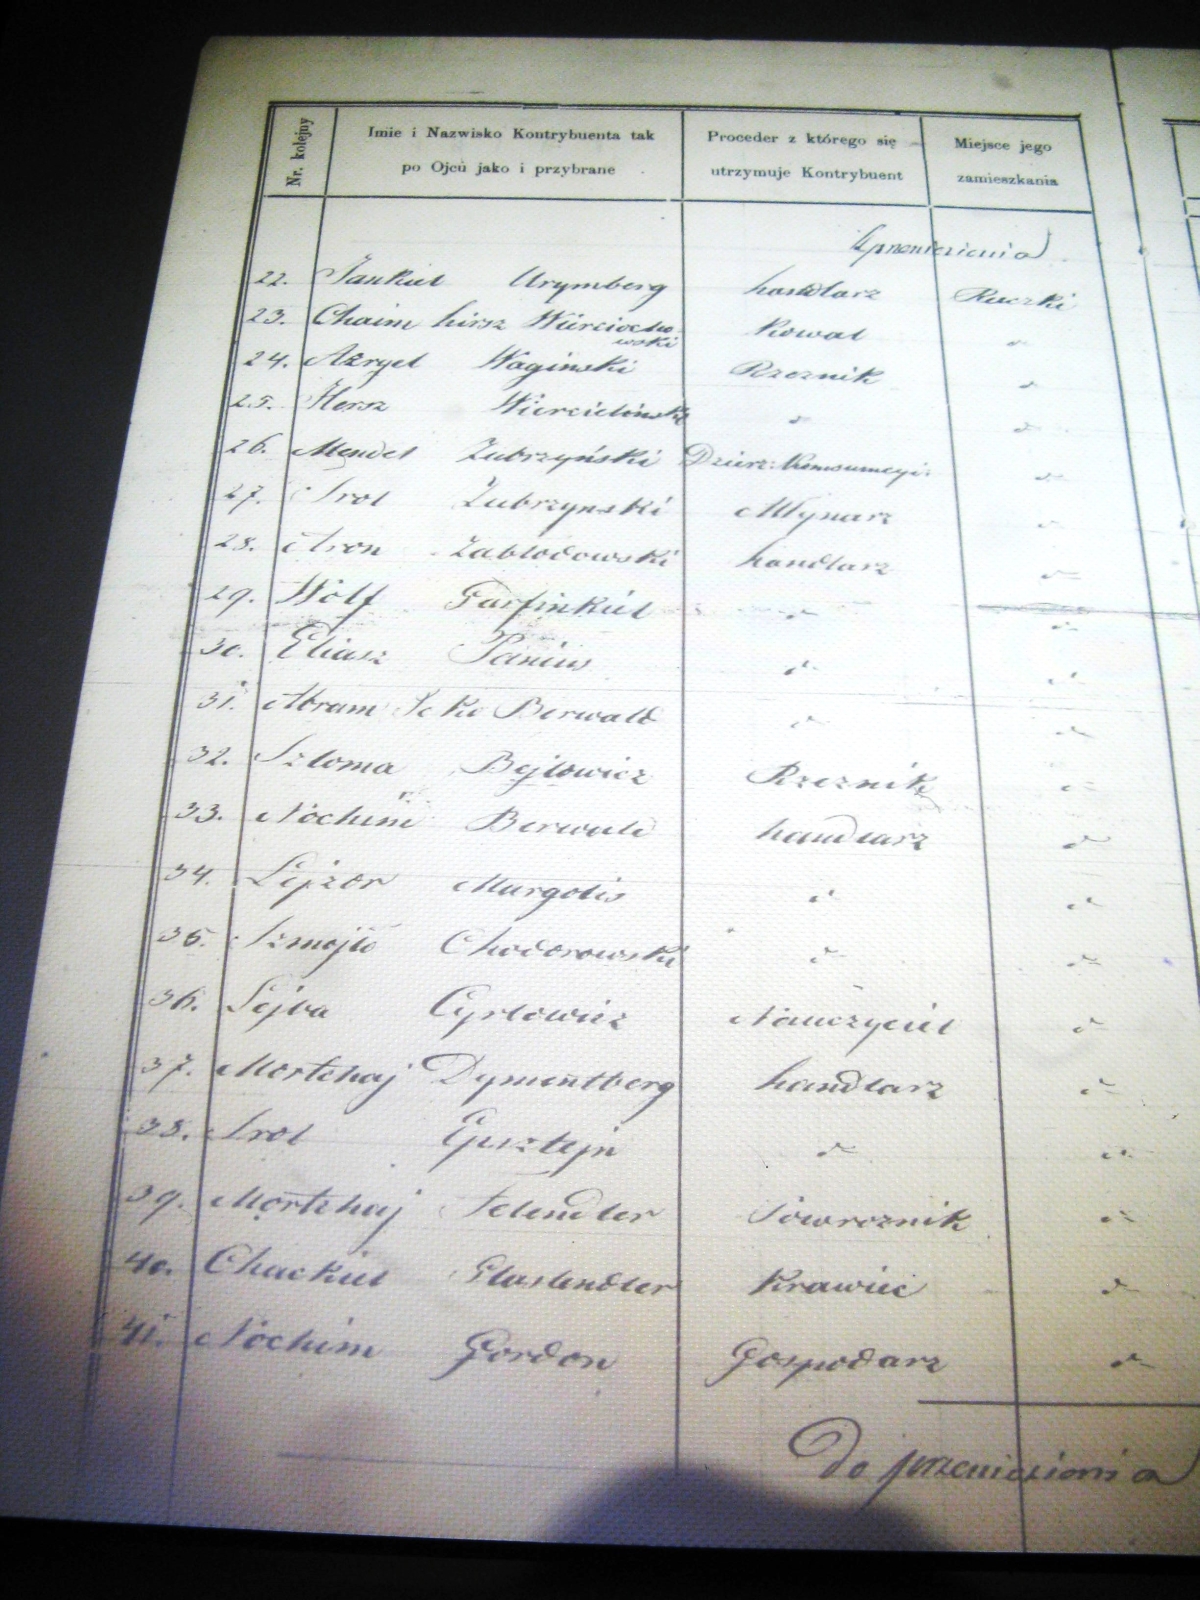 Nr. kolejny
Imie i Nazwisko Kontrybuenta tak po Ojcu jako i przybrane
Proceder z którego się utrzymuje Kontrybuent
Miejsce jego zamieszkania
Z przeniesienia
22. Jankiel Grymberg handlarz Raczki
23. Chaim hirsz Wierciochowski Kowal d
24. Azryel Waginski Rzeznik d
25. Hersz d d
26. Mendel Zubrzyński Dzierz: Konsumcyi d
27. Srol Zubrzynski Młynarz d
28. Aron Zabłodowski handlarz d
29. Wolf Garfinkiel d d
30. Eliasz d d
31. Abram Berwald d d
32. Szloma Bejlowicz Rzeznik d
33. Nochim Berwald handlarz d
34. Lejzor Murgolis d d
35. Szmojło Chodorowski d d
36. Lejba Cyrlowicz Nauczyciel d
37. Mortchaj Dymentberg handlarz d
38. Srol Epsztejn d d
39. Mortchaj Felendler d
40. Chackiel Glaslendler Krawiec d
41. Nochim Gordon Gospodarz d
Do przeniesienia